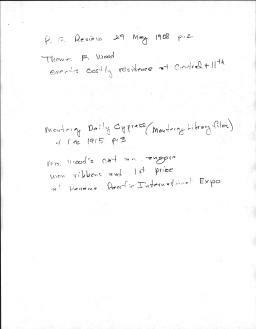 P. G. Review 29 May 1908 p.2
Thomas B. Wood
erects costly residence at Central + 11th
Monterey Daily Cypress (Monterey Library files)
Dec 1915 p.3
Mrs. Wood's cat an angora
won ribbons and 1st prize
at Panama Pacific International Expo